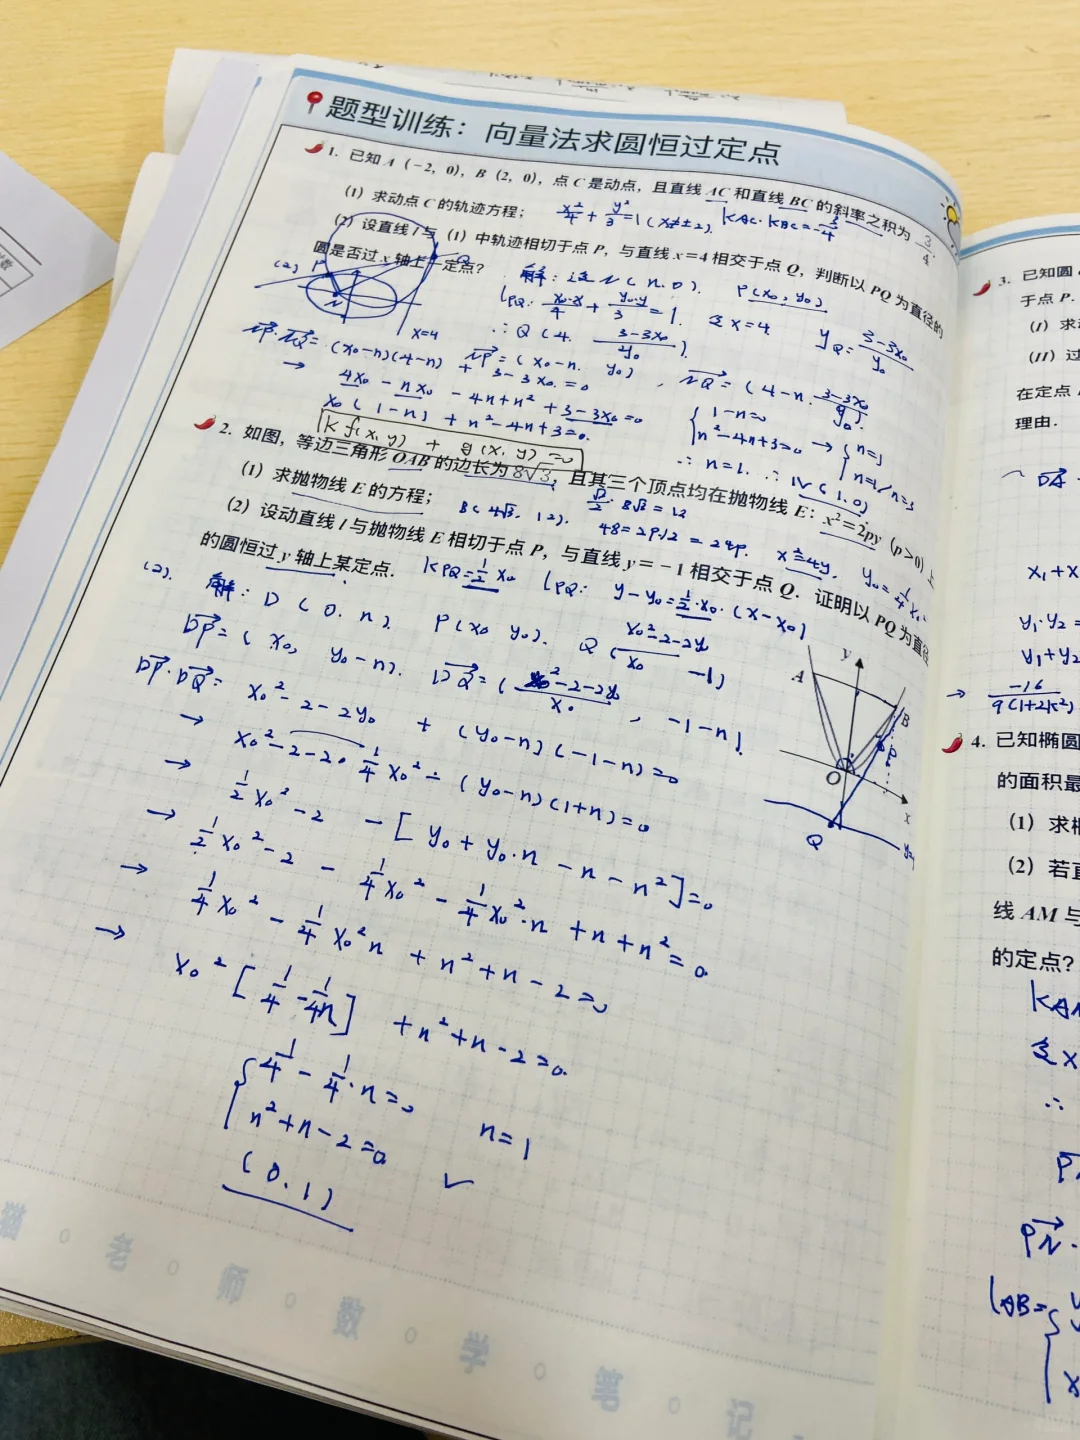 题型训练：向量法求圆恒过定点
1. 已知 A（-2，0），B（2，0），点 C 是动点，且直线 AC 和直线 BC 的斜率之积为 -3/4.
（1）求动点 C 的轨迹方程；
x²/4 + y²/3 = 1 (x≠±2). KAC·KBC=-3/4
（2）设直线 l 与（1）中轨迹相切于点 P，与直线 x=4 相交于点 Q，判断以 PQ 为直径的
圆是否过 x 轴上一定点？
(2) P Q N x=4
解：设 N(n,0). P(x₀,y₀)
lPQ: x₀·x/4 + y₀·y/3 = 1. 令 x=4 yQ = 3-3x₀/y₀
∴ Q(4, 3-3x₀/y₀).
NP=(x₀-n, y₀), NQ=(4-n, 3-3x₀/y₀).
NP·NQ=(x₀-n)(4-n) + 3-3x₀=0
→ 4x₀-nx₀-4n+n²+3-3x₀=0
x₀(1-n)+n²-4n+3=0.
{1-n=0
n²-4n+3=0 → {n=1
n=1/n=3
∴ n=1. ∴ N(1,0)
kf(x,y)+g(x,y)=0
2. 如图，等边三角形 OAB 的边长为 8√3，且其三个顶点均在抛物线 E：x²=2py（p>0）上
（1）求抛物线 E 的方程；
B(4√3, 12). √3/2·8√3=12
48=2P·12=24P. x²=4y. y₀=1/4x₀²
（2）设动直线 l 与抛物线 E 相切于点 P，与直线 y=-1 相交于点 Q．证明以 PQ 为直径
的圆恒过 y 轴上某定点.
KPQ=1/2x₀ lPQ: y-y₀=1/2·x₀·(x-x₀)
(2). 解：D(0,n). P(x₀ y₀). Q(x₀²-2-2y₀/x₀, -1)
DP=(x₀, y₀-n). DQ=(x₀²-2-2y₀/x₀, -1-n).
DP·DQ= x₀²-2-2y₀+(y₀-n)(-1-n)=0
→ x₀²-2-2·1/4x₀²-(y₀-n)(1+n)=0
→ 1/2x₀²-2-[y₀+y₀·n-n-n²]=0
→ 1/2x₀²-2-1/4x₀²-1/4x₀²·n+n+n²=0
→ 1/4x₀²-1/4x₀²n+n²+n-2=0
→ x₀²[1/4-1/4n]+n²+n-2=0.
{1/4-1/4·n=0
n²+n-2=0 n=1
(0,1) ✓
y A B P O x Q
3. 已知圆
于点 P.
（I）求
（II）过
在定点
理由.
x₁+x
y₁·y₂=
y₁+y₂
→ -16/9(1+2k²)
4. 已知椭圆
的面积最
（1）求
（2）若直
线 AM 与
的定点？
KAM
令x
∴
PN·
lAB=
猫 老 师 数 学 笔 记